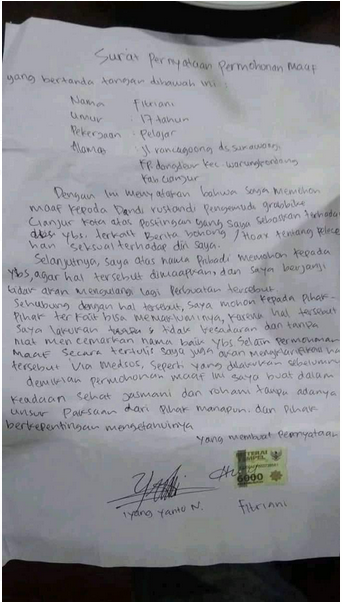 Surat Pernyataan Permohonan Maaf
yang bertanda tangan dibawah ini :
Nama Fitriani
Umur : 17 tahun
Pekerjaan : Pelajar
Alamat : jl rancagoong ds sunawang
kec. warungkondang
Kab cianjur
Dengan ini menyatakan bahwa saya memohon
maaf kepada Dandi rustandi pengemudi grabbike
Cianjur Kota atas postingan yang saya sebarkan terhadap
ybs. terkait Berita bohong / Hoax tentang pelece
han seksual terhadap diri saya.
Selanjutnya, saya atas nama Pribadi memohon kepada
ybs, agar hal tersebut dimaafkan dan saya berjanji
tidak akan mengulang lagi perbuatan tersebut.
Sehubung dengan hal tersebut, saya mohon kepada Pihak-
Pihak terkait bisa memakluminya, karena hal tersebut
saya lakukan tidak kesadaran dan tanpa
niat mencemarkan nama baik ybs. Selain permohonan
maaf secara tertulis saya juga akan mengklarifikasi hal
tersebut via medsos, seperti yang dilakukan sebelumnya
demikian permohonan maaf ini saya buat dalam
keadaan sehat jasmani dan rohani tanpa adanya
unsur paksaan dari pihak manapun dan pihak
berkepentingan mengetahuinya
yang membuat pernyataan
METERAI
TEMPEL
6000
iyang yanto N. Fitriani